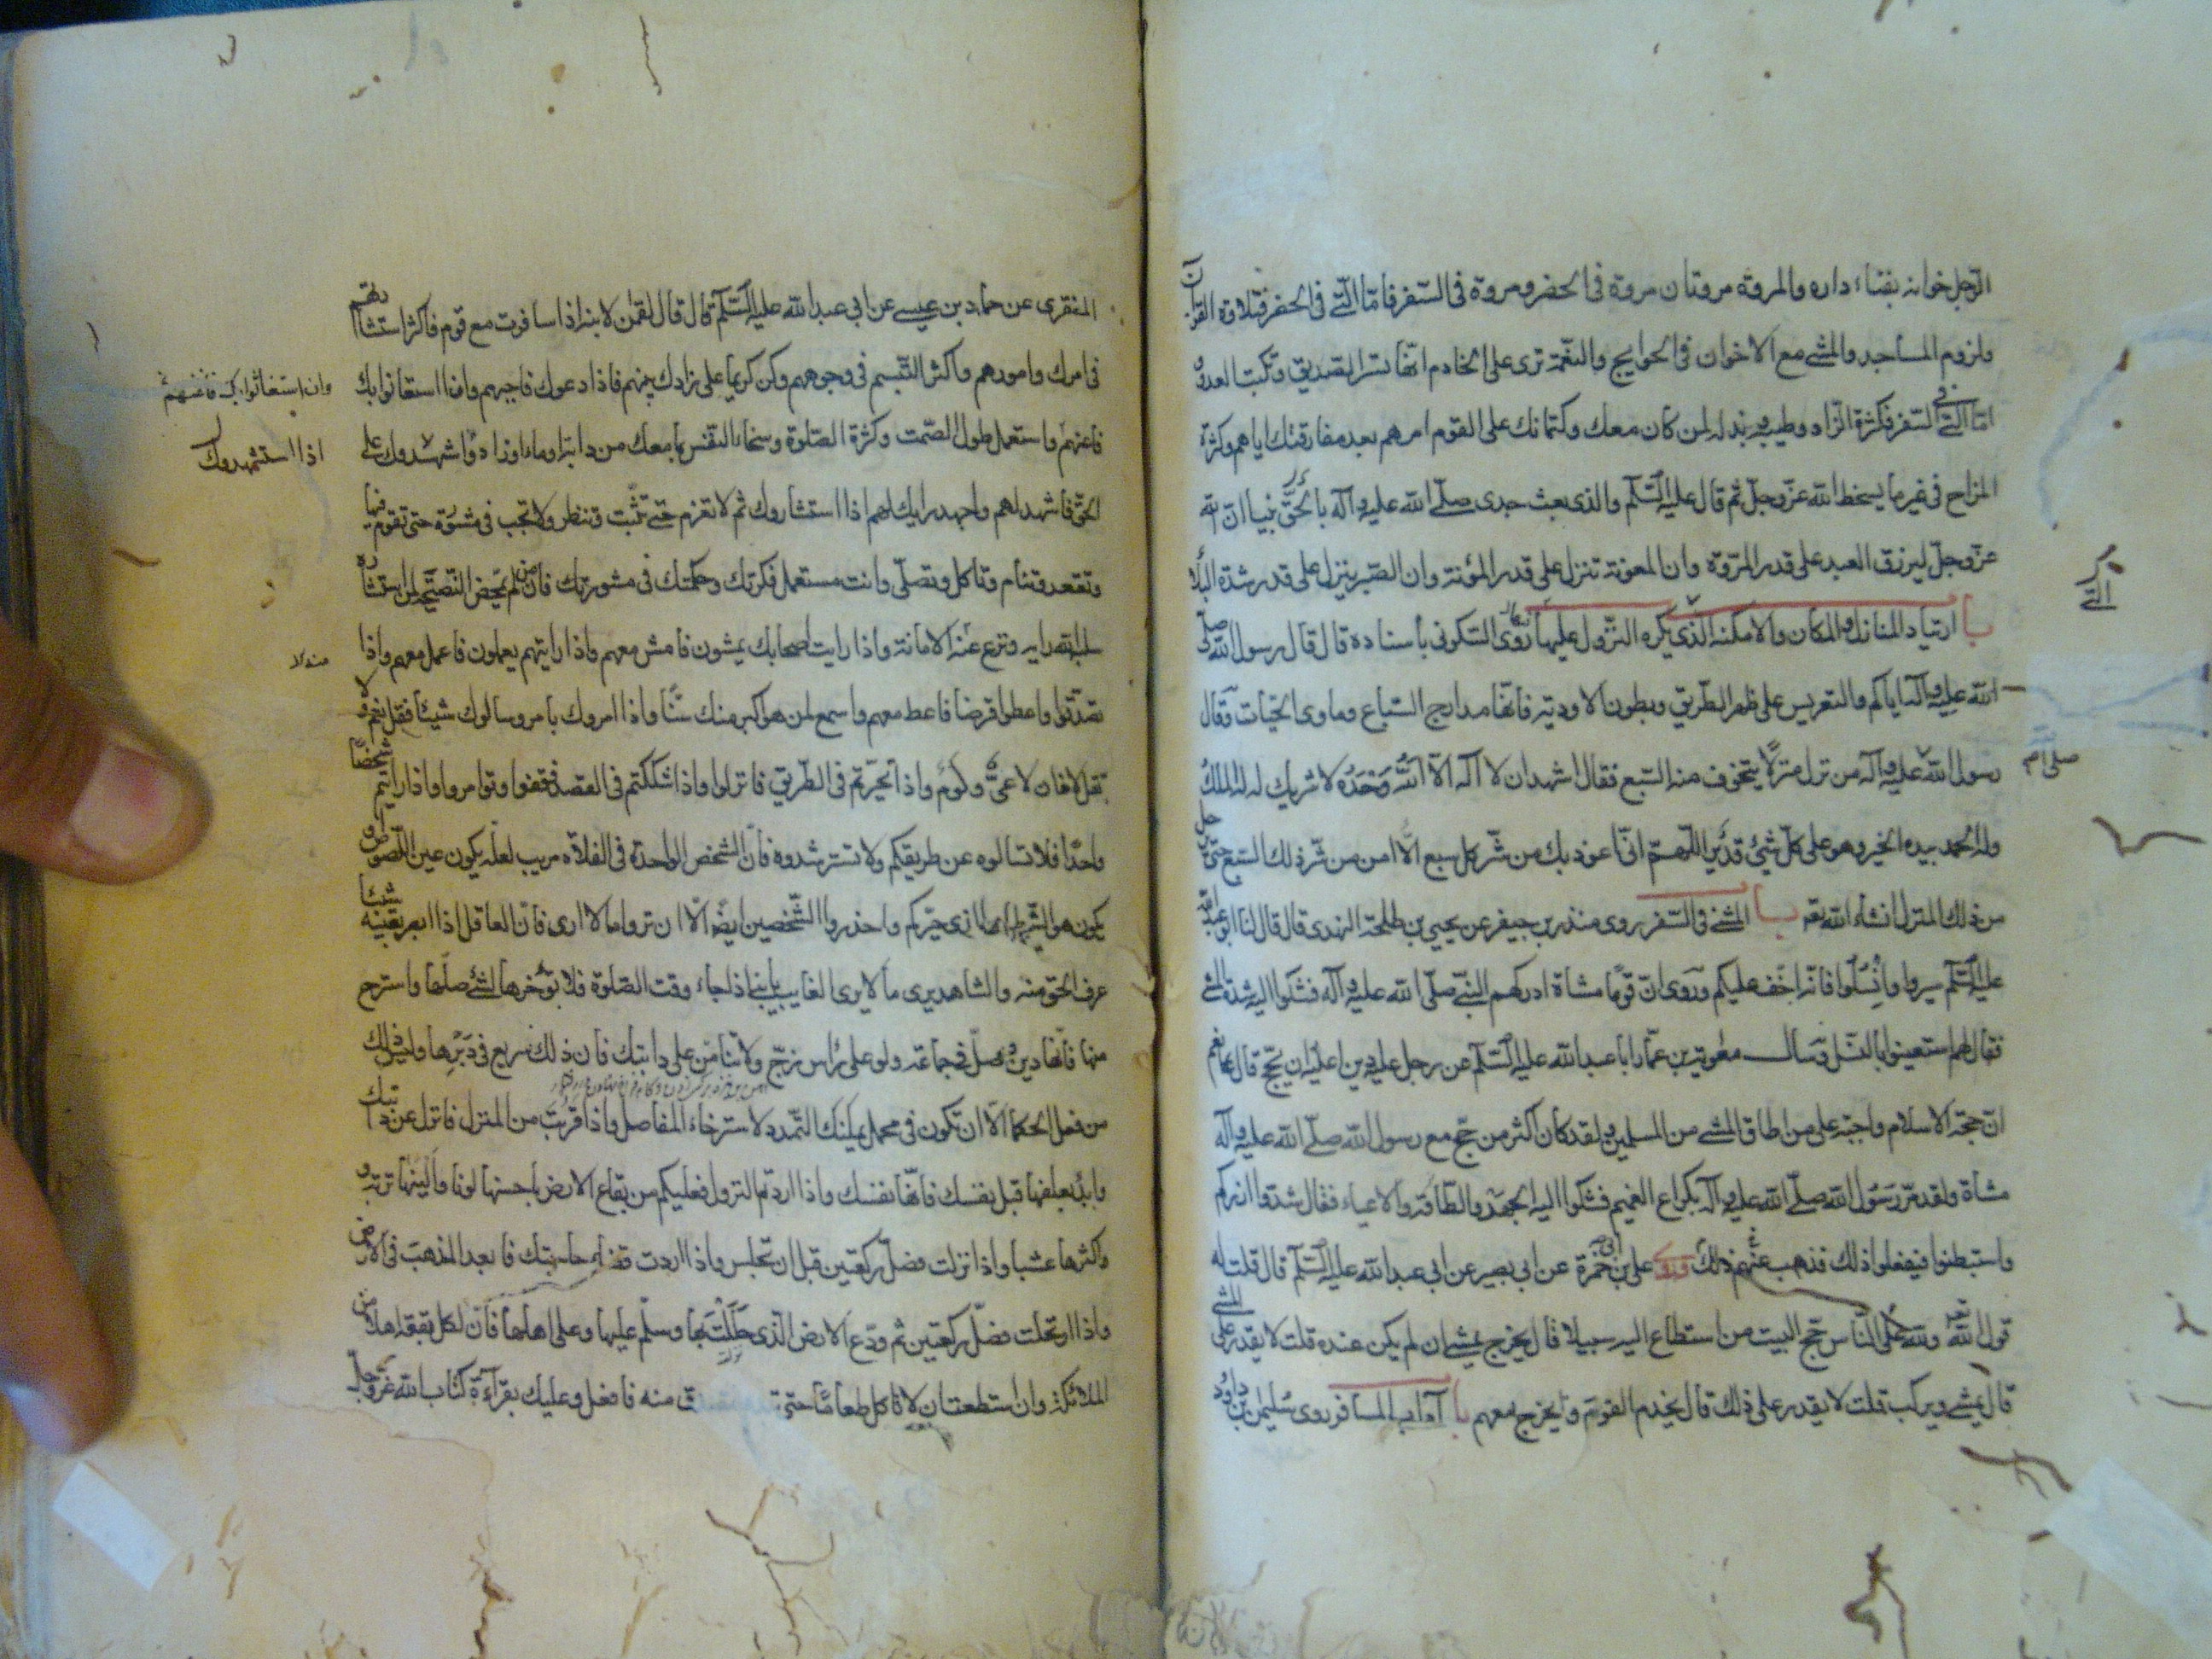 الرجل خوانه بفناء داره والمروة مروتان مروة فى الحضر ومروة فى السفر فاما التى فى الحضر فتلاوة القرآن
ولزوم المساجد والمشى مع الاخوان فى الحوايج والنعمة ترى على الخادم انها تسر الصديق وتكبت العدو
اما التى فى السفر فكثرة الزاد وطيبه وبذله لمن كان معك وكتمانك على القوم امرهم بعد مفارقتك اياهم وكثرة
المزاح فى غير ما يسخط الله عز وجل ثم قال عليه السلام والذى بعث جدى صلى الله عليه وآله بالحق نبيا ان الله
عز وجل ليرزق العبد على قدر المروة وان المعونة تنزل على قدر المؤنة وان الصبر ينزل على قدر شدة البلاء
باب ارتياد المنازل والمكان والامكنة الذى يكره النزول عليها روى السكونى بأسناده قال قال رسول الله صلى
الله عليه وآله اياكم والتعريس على ظهر الطريق وبطون الاودية فانها مدارج السباع وماوى الحيات وقال
رسول الله عليه وآله من نزل منزلا يتخوف منه السبع فقال اشهد ان لا اله الا الله وحده لا شريك له له الملك
وله الحمد بيده الخير وهو على كل شئ قدير اللهم انى اعوذ بك من شر كل سبع الا امن من شر ذلك السبع حتى يرحل
من ذلك المنزل انشاء الله تعالى باب المشى فى السفر روى منذر بن جيفر عن يحيى بن طلحة النهدى قال قال لنا ابو عبد الله
عليه السلام سيروا وانسلوا فانه اخف عليكم وروى ان قوما مشاة ادركهم النبى صلى الله عليه وآله فشكوا اليه شدة المشى
فقال لهم استعينوا بالنسل وسال معوية بن عمار ابا عبد الله عليه السلام عن رجل عليه دين اعليه ان يحج قال نعم
ان حجة الاسلام واجبة على من اطاق المشى من المسلمين ولقد كان اكثر من حج مع رسول الله صلى الله عليه وآله
مشاة ولقد مر رسول الله صلى الله عليه وآله بكراع الغميم فشكوا اليه الجهد والطاقة والاعياء فقال شدوا ازركم
واستبطنوا ففعلوا ذلك فذهب عنهم ذلك وروى على بن ابى حمزة عن ابى بصير عن ابى عبد الله عليه السلام قال قلت له
قول الله ولله على الناس حج البيت من استطاع اليه سبيلا قال يخرج يمشى ان لم يكن عنده قلت لا يقدر على المشى
قال يمشى ويركب قلت لا يقدر على ذلك قال يخدم القوم ويخرج معهم باب آداب المسافر روى سليمن بن داود
التى
صلى الله
المنقرى عن حماد بن عيسى عن ابى عبد الله عليه السلام قال قال لقمن لابنه اذا سافرت مع قوم فاكثر استشارتهم
فى امرك وامورهم واكثر التبسم فى وجوههم وكن كريما على زادك بينهم فاذا دعوك فاجبهم واذا استعانوا بك
وان استغاثوا بك فاغثهم
فاعنهم واستعمل طول الصمت وكثرة الصلوة وسخاء النفس بما معك من دابة او ماء او زاد واشهدوك على
اذا استشهدوك
الحق فاشهد لهم واجهد رايك لهم اذا استشاروك ثم لا تعزم حتى تثبت وتنظر ولا تجب فى مشورة حتى تقوم فيها
وتقعد وتنام وتاكل وتصلى وانت مستعمل فكرتك وحكمتك فى مشورتك فان من لم يمحض النصيحة لمن استشاره
سلبه الله رايه ونزع عنه الامانة واذا رايت اصحابك يمشون فامش معهم واذا رايتهم يعملون فاعمل معهم واذا
تصدقوا واعطوا قرضا فاعط معهم واسمع لمن هو اكبر منك سنا واذا امروك بامر وسالوك شيئا فقل نعم ولا
تقل لا فان لا عى ولوم واذا تحيرتم فى الطريق فانزلوا واذا شككتم فى القصد فقفوا وتوامروا واذا رايتم شخصا
واحدا فلا تسالوه عن طريقكم ولا تسترشدوه فان الشخص الواحد فى الفلاة مريب لعله يكون عين اللصوص او
يكون هو الشيطان الذى حيركم واحذروا الشخصين ايضا الا ان تروا ما لا ارى فان العاقل اذا ابصر بعينه شيئا
عرف الحق منه والشاهد يرى ما لا يرى الغايب يا بنى اذا جاء وقت الصلوة فلا تؤخرها لشئ صلها واسترح
منها فانها دين وصل فى جماعة ولو على راس زج ولا تنامن على دابتك فان ذلك سريع فى دبرها وليس ذلك
من فعل الحكماء الا ان تكون فى محمل يمكنك التمدد لاسترخاء المفاصل واذا قربت من المنزل فانزل عن دابتك
وابدء بعلفها قبل نفسك فانها نفسك واذا اردتم النزول فعليكم من بقاع الارض باحسنها لونا والينها تربة و
اكثرها عشبا واذا نزلت فصل ركعتين قبل ان تجلس واذا اردت قضاء حاجتك فابعد المذهب فى الارض
واذا ارتحلت فصل ركعتين ثم ودع الارض الذى حللت بها وسلم عليها وعلى اهلها فان لكل بقعة اهلا من
الملائكة وان استطعت ان لا تاكل طعاما حتى منه فافعل وعليك بقراءة كتاب الله عز وجل